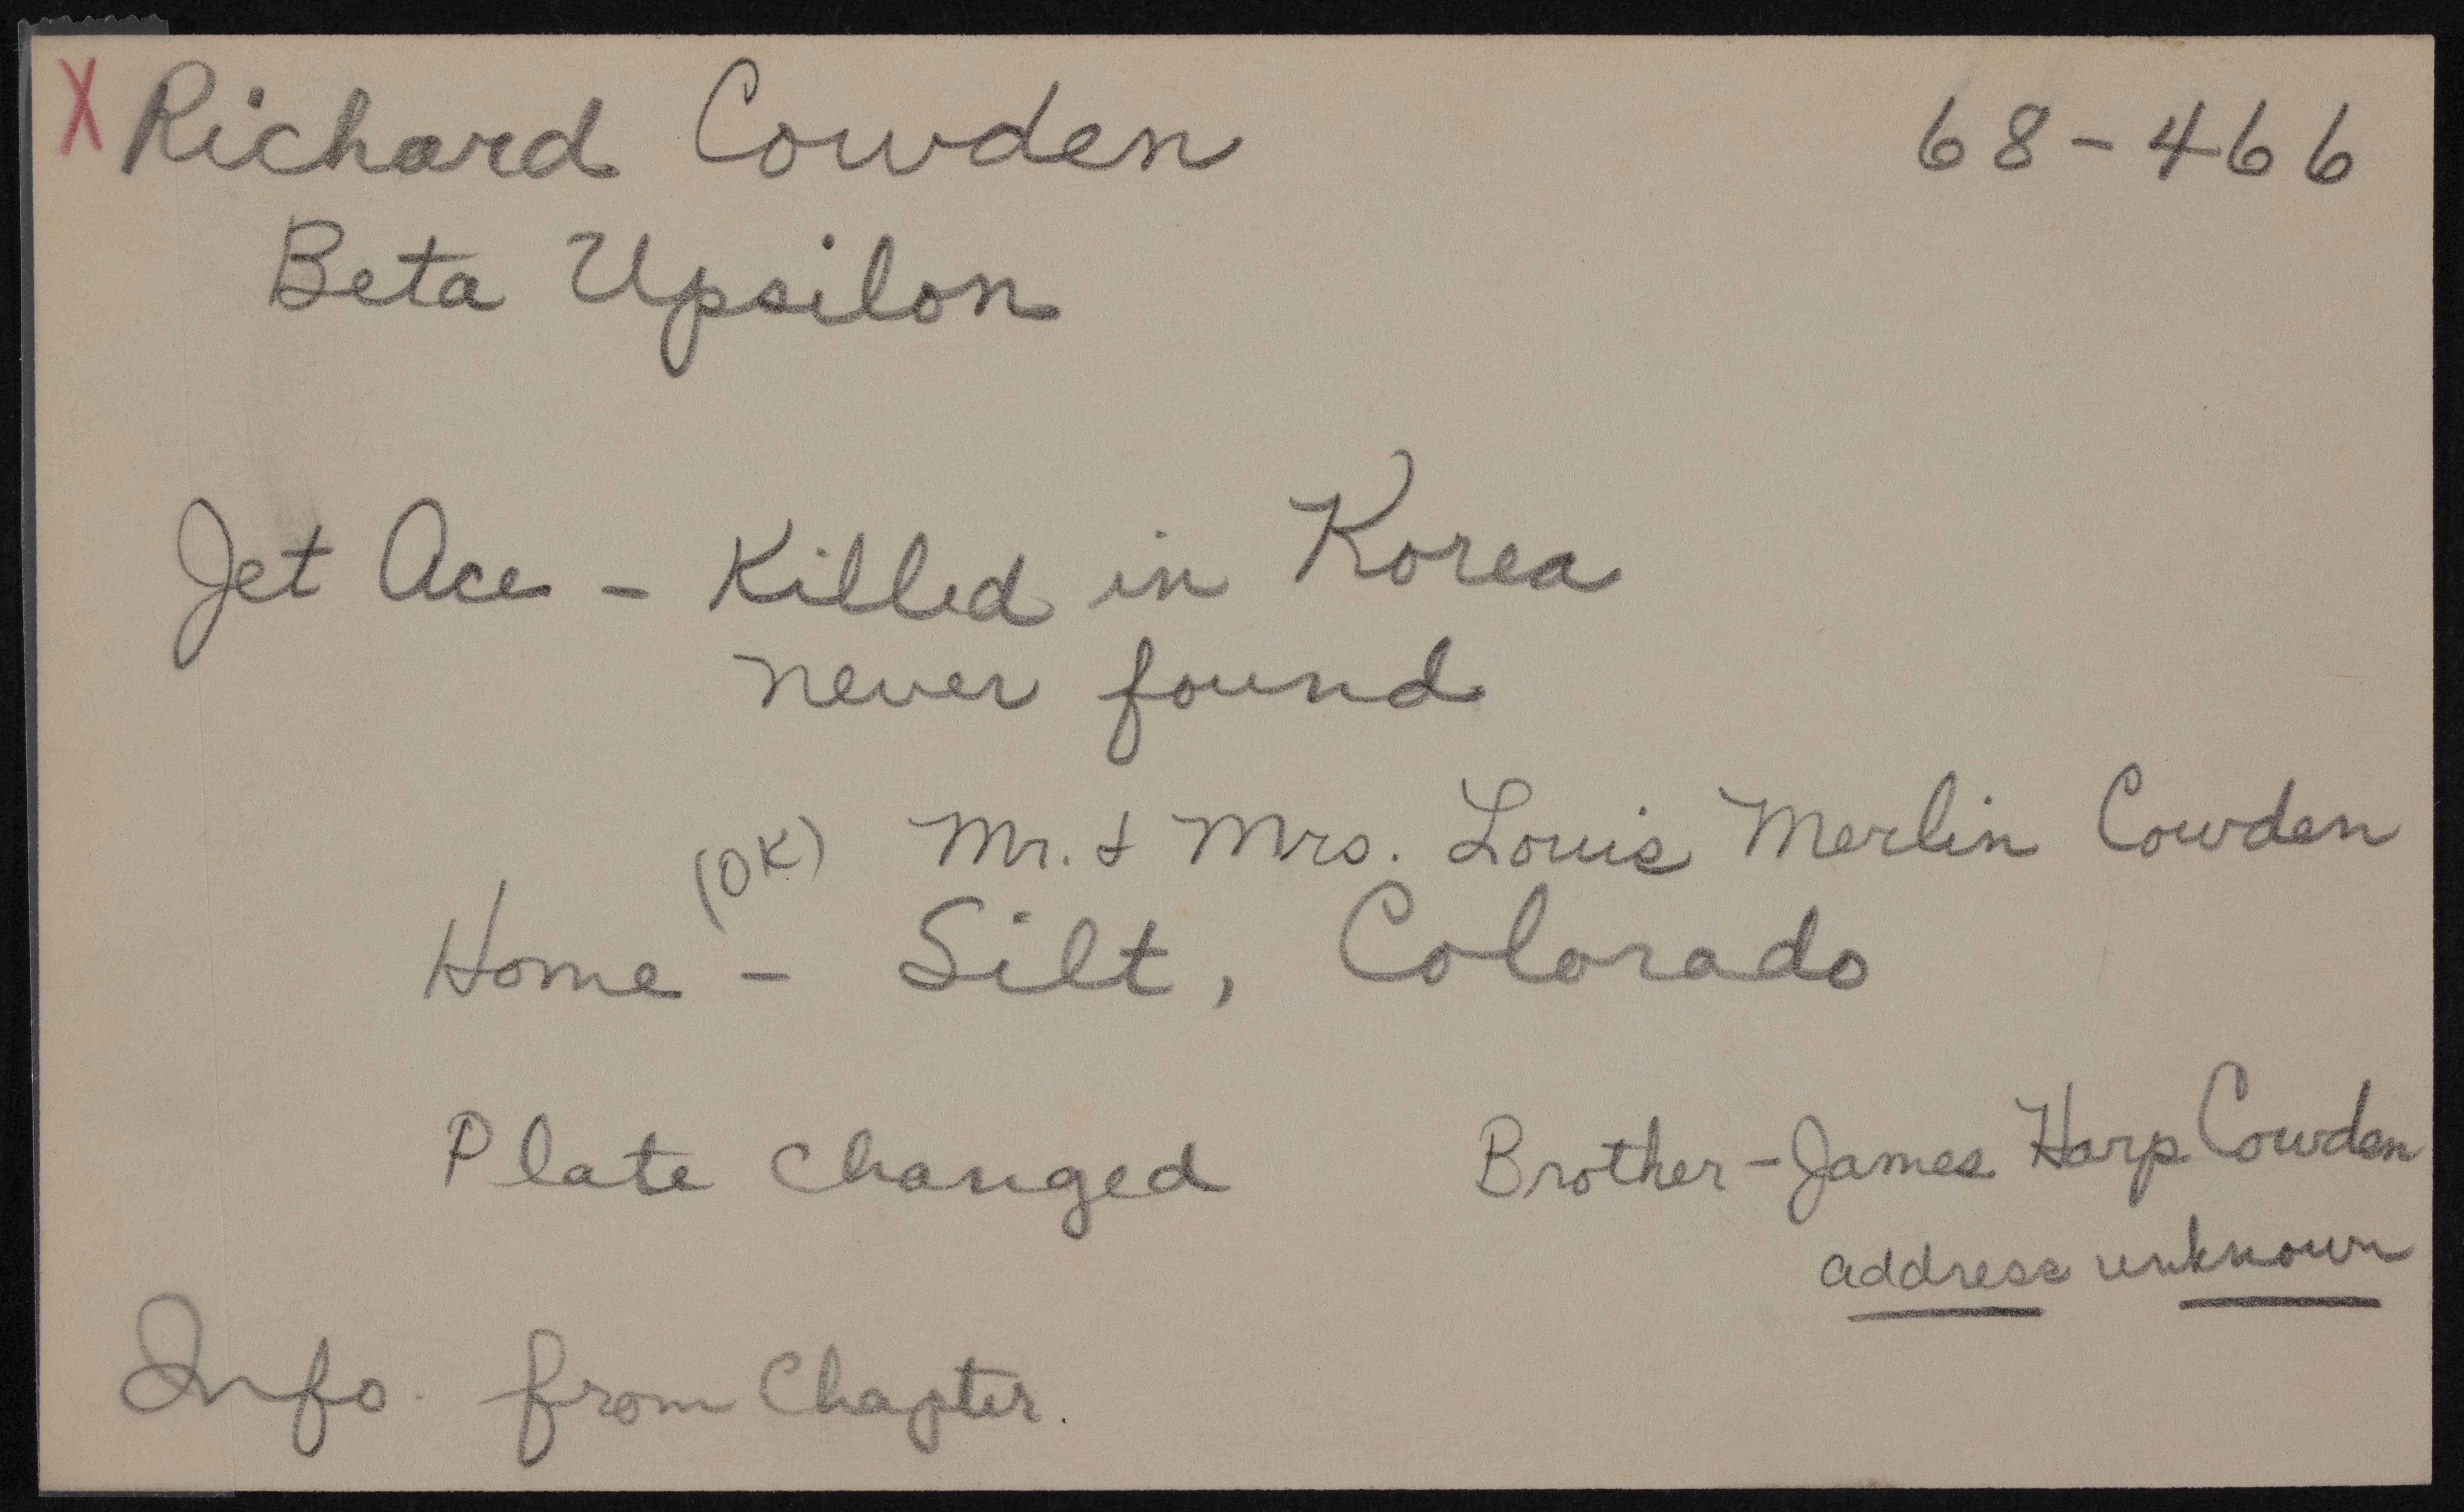 X Richard Cowden 68-466
Beta Upsilon
Jet Ace - Killed in Korea
never found
(OK) Mr. & Mrs. Louis Merlin Cowden
Home - Silt, Colorado
Plate changed
Brother - James Harp Cowden
address unknown
Info. from Chapter.